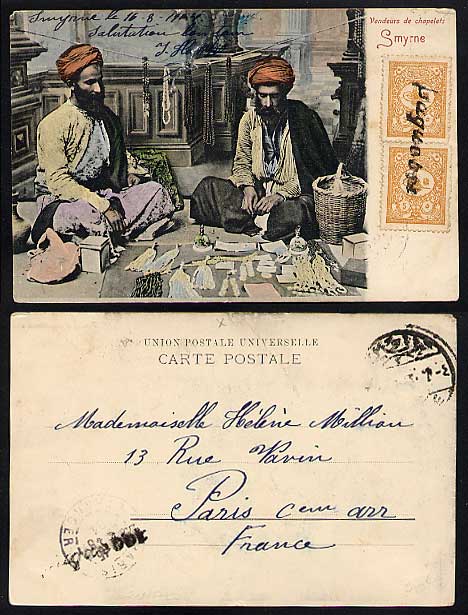 Smyrne le 16.8.
Salutation
Vendeurs de chapelets
Smyrne
paquebot
UNION POSTALE UNIVERSELLE
CARTE POSTALE
Mademoiselle Hélène Million
13 Rue Vavin
Paris Cem arr
France